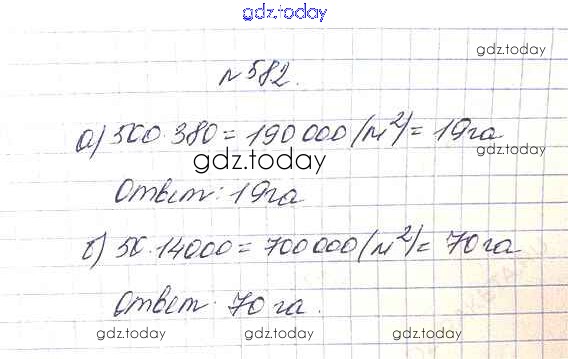 gdz.today
gdz.today
№582.
а) 500·380=190 000 (м²)=19га
gdz.today
gdz.today
Ответ: 19га
б) 50·14000=700000(м²)=70га
Ответ: 70 га.
gdz.today gdz.today gdz.today